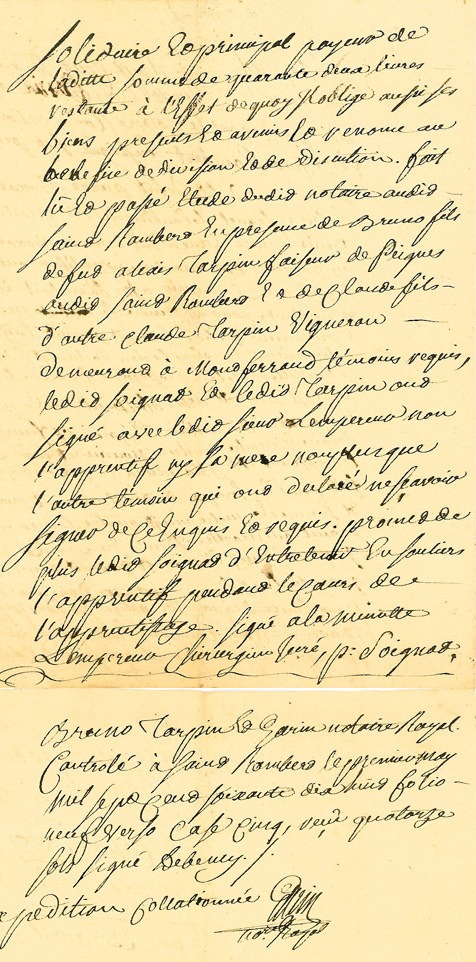 Solidaire Et principal payeur de
laditte somme de quarante deux livres
restante à l'Effet de quoy Il oblige aussi ses
biens presents Et avenirs Et renonce au
benefice de division Et de discution. fait
lû Et passé Etude dudid notaire audid
Saint Rambert En presence de Bruno fils
de feud alexis Tarpin faiseur de Peignes
audid Saint Rambert Et de Claude fils
d'autre Claude Tarpin Vigneron
demeurand à Montferrand témoins requis,
ledid Soignat Et ledid Tarpin ond
signé avec ledid sieur Lempereur non
l'apprentif ny sa mere non plus que
l'autre témoin qui ond declaré ne sçavoir
signer de ce Enquis Et requis. promet de
plus ledid Soignat d'Entretenir En souliers
l'apprentif pendand le Cours de
l'apprentissage. signé a la minutte
Lempereur Chirurgien Juré, p. Soignat.
Bruno Tarpin Et Garin notaire Royal.
Controlé à Saint Rambert le premier may
mil sept Cend soixante dix huid folio
neuf verso Case Cinq, reçu quatorze
sols signé Debeney ./.
Expedition Collationnée Garin
no.re Royal